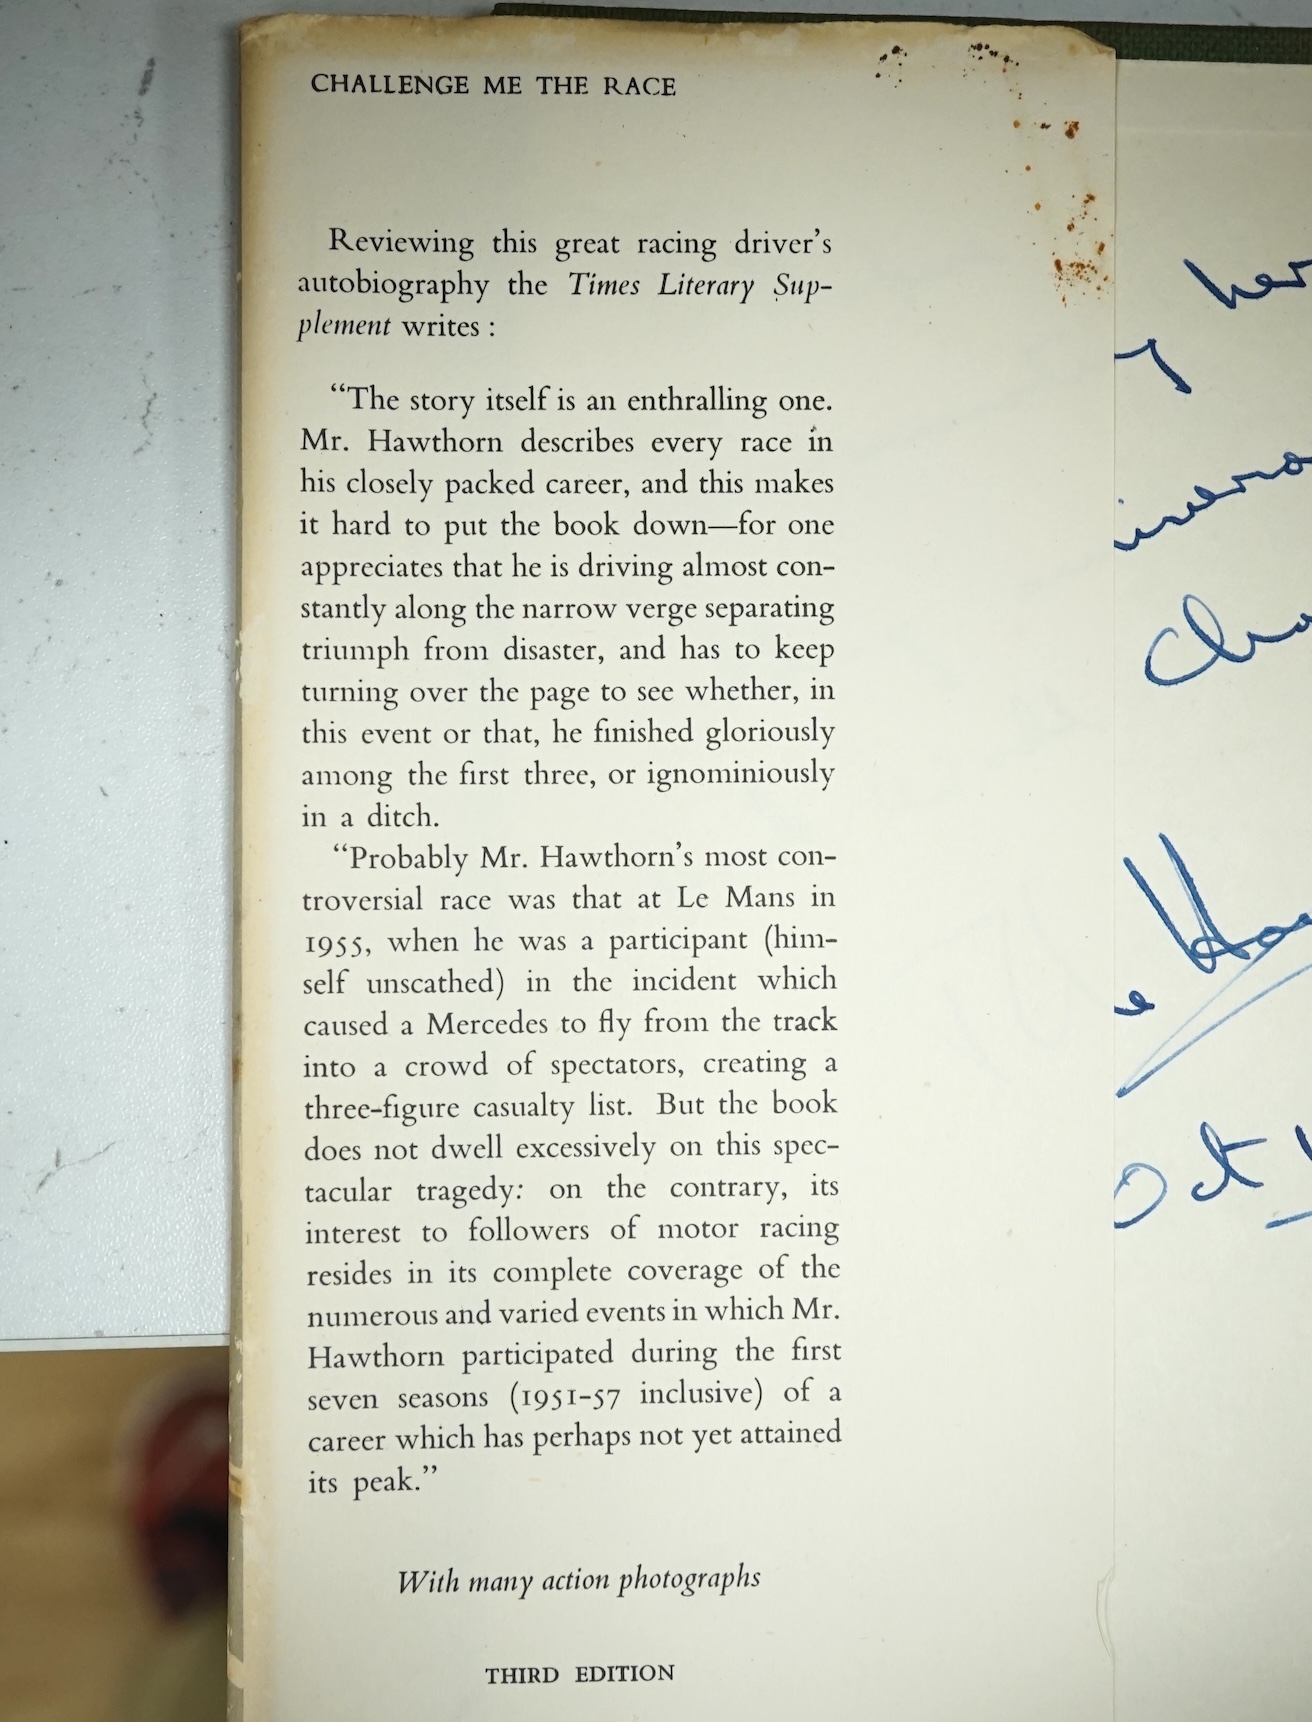 CHALLENGE ME THE RACE
Reviewing this great racing driver's
autobiography the Times Literary Sup-
plement writes :
“The story itself is an enthralling one.
Mr. Hawthorn describes every race in
his closely packed career, and this makes
it hard to put the book down—for one
appreciates that he is driving almost con-
stantly along the narrow verge separating
triumph from disaster, and has to keep
turning over the page to see whether, in
this event or that, he finished gloriously
among the first three, or ignominiously
in a ditch.
“Probably Mr. Hawthorn's most con-
troversial race was that at Le Mans in
1955, when he was a participant (him-
self unscathed) in the incident which
caused a Mercedes to fly from the track
into a crowd of spectators, creating a
three-figure casualty list. But the book
does not dwell excessively on this spec-
tacular tragedy: on the contrary, its
interest to followers of motor racing
resides in its complete coverage of the
numerous and varied events in which Mr.
Hawthorn participated during the first
seven seasons (1951-57 inclusive) of a
career which has perhaps not yet attained
its peak.”
With many action photographs
THIRD EDITION
Oct